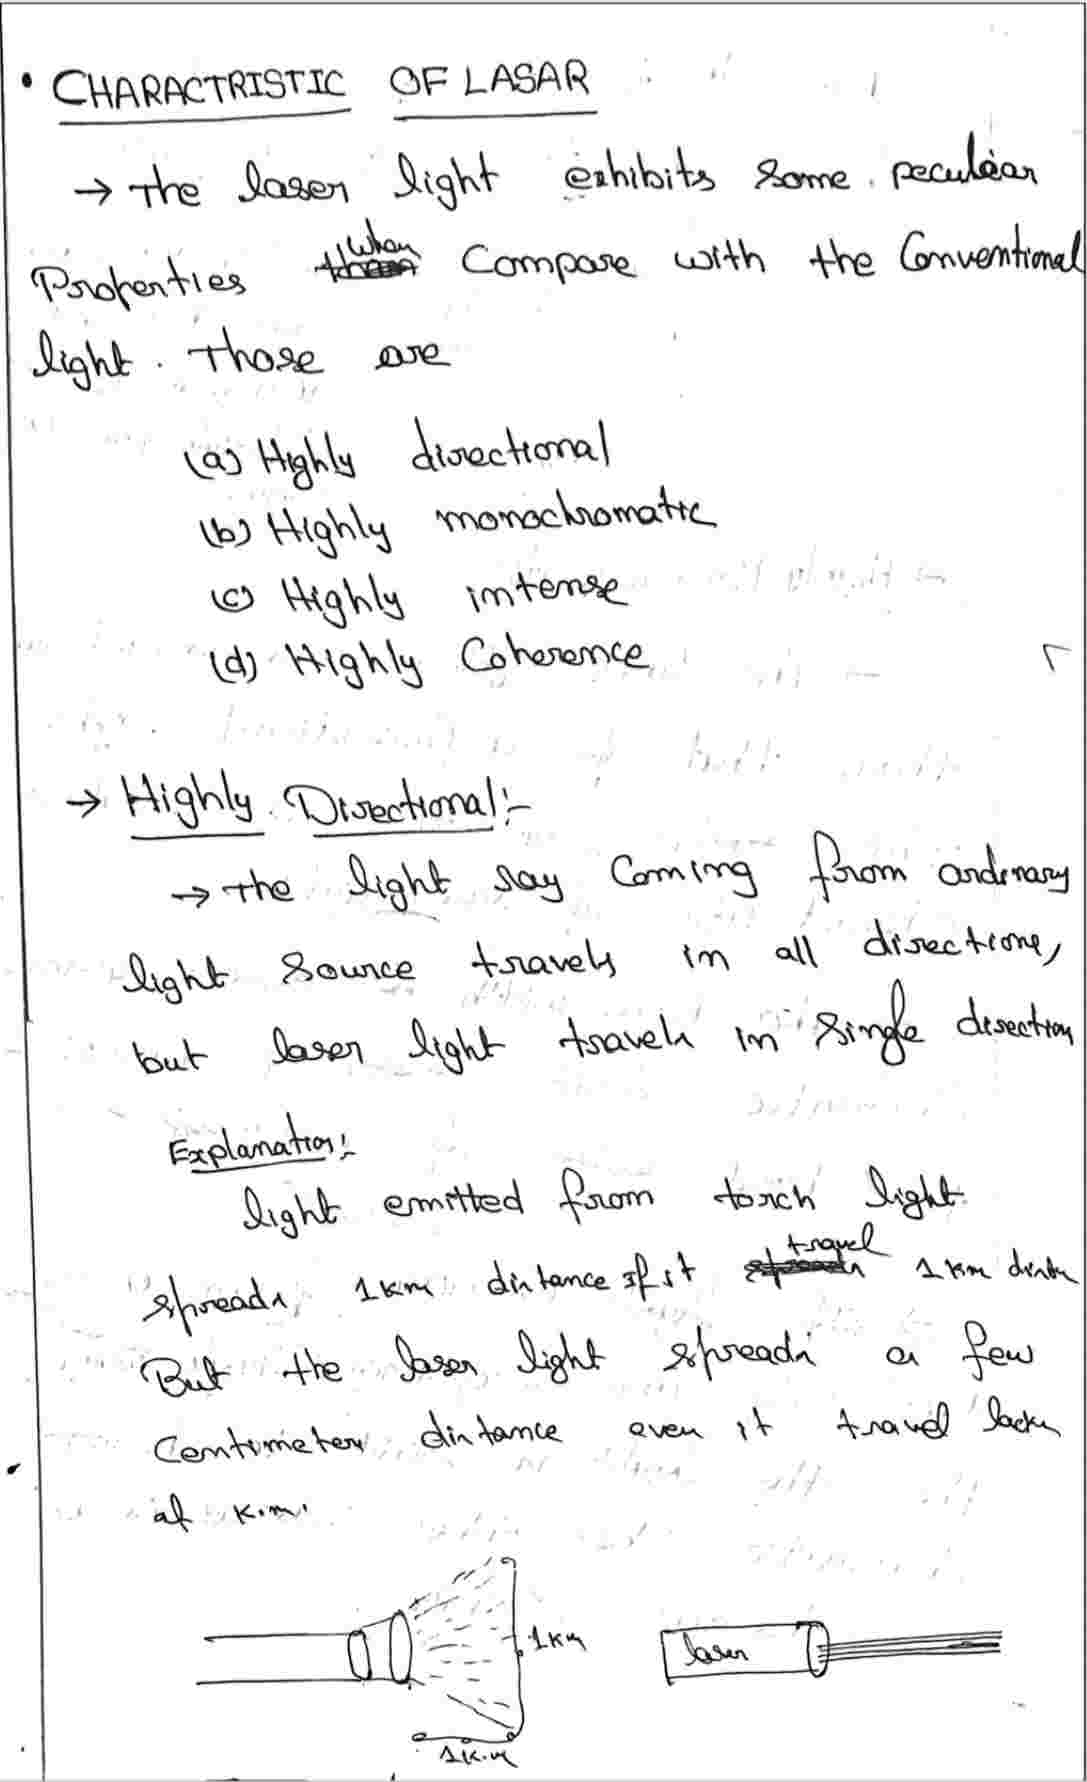 • CHARACTRISTIC OF LASAR
→ The laser light exhibits some peculiar
Properties when Compare with the Conventional
light. Those are
(a) Highly directional
(b) Highly monochromatic
(c) Highly intense
(d) Highly Coherence
→ Highly Directional:-
→ The light ray Coming from ordinary
light source travels in all directions,
but laser light travels in single direction
Explanation:
light emitted from torch light
spreads 1km distance if it travel 1km
But the laser light spreads a few
Centimeters distance even it travel lacks
of k.m.
1km
laser
1k.m